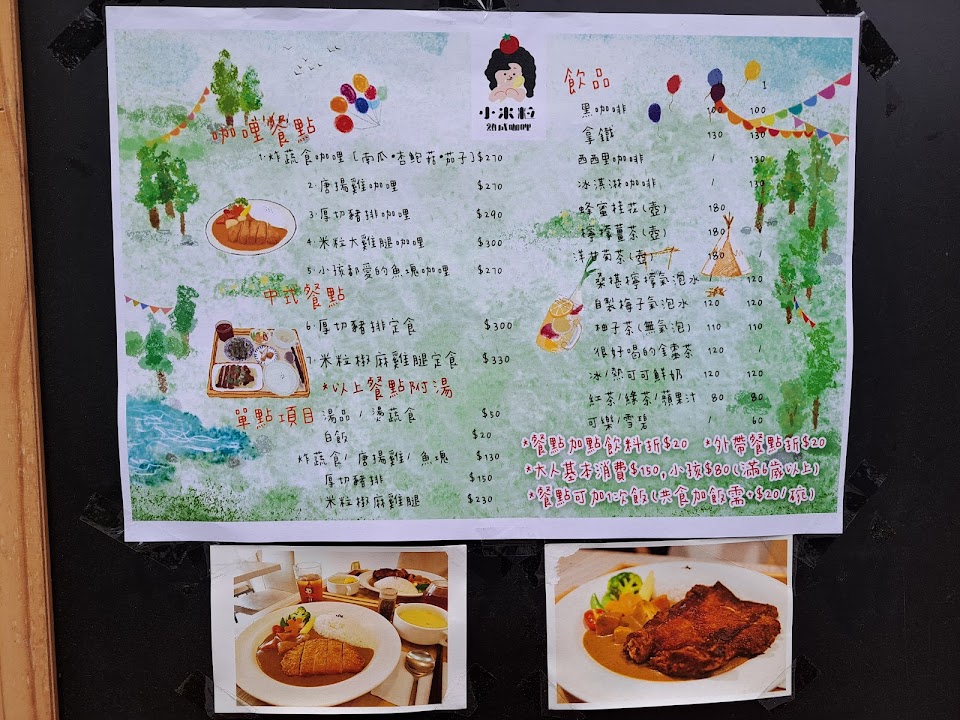 小米粒
熟成咖哩
咖哩餐點
1.炸蔬食咖哩〔南瓜•杏鮑菇•茄子〕$270
2.唐揚雞咖哩 $270
3.厚切豬排咖哩 $290
4.米粒大雞腿咖哩 $300
5.小孩都愛的魚塊咖哩 $270
中式餐點
6.厚切豬排定食 $300
7.米粒椒麻雞腿定食 $330
*以上餐點附湯
單點項目 湯品/燙蔬食 $50
白飯 $20
炸蔬食/唐揚雞/魚塊 $130
厚切豬排 $150
米粒椒麻雞腿 $230
飲品
黑咖啡 100 100
拿鐵 130 130
西西里咖啡 / 130
冰淇淋咖啡 / 130
蜂蜜桂花(壺) 180
檸檬薑茶(壺) 180 /
洋甘菊茶(壺) 180 /
桑椹檸檬氣泡水 / 120
自製梅子氣泡水 120 120
柚子茶(無氣泡) 110 110
很好喝的金棗茶 120 /
冰/熱可可鮮奶 120 120
紅茶/綠茶/蘋果汁 80 80
可樂/雪碧 / 60
*餐點加點飲料折$20 *外帶餐點折$20
*大人基本消費$150,小孩$80(滿6歲以上)
*餐點可加1次飯(共食加飯需+$20/碗)